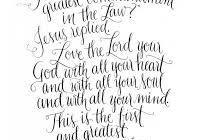 greatest commandment
in the Law?
Jesus replied.
Love the Lord your
God with all your heart
and with all your soul
and with all your mind.
This is the first
and greatest